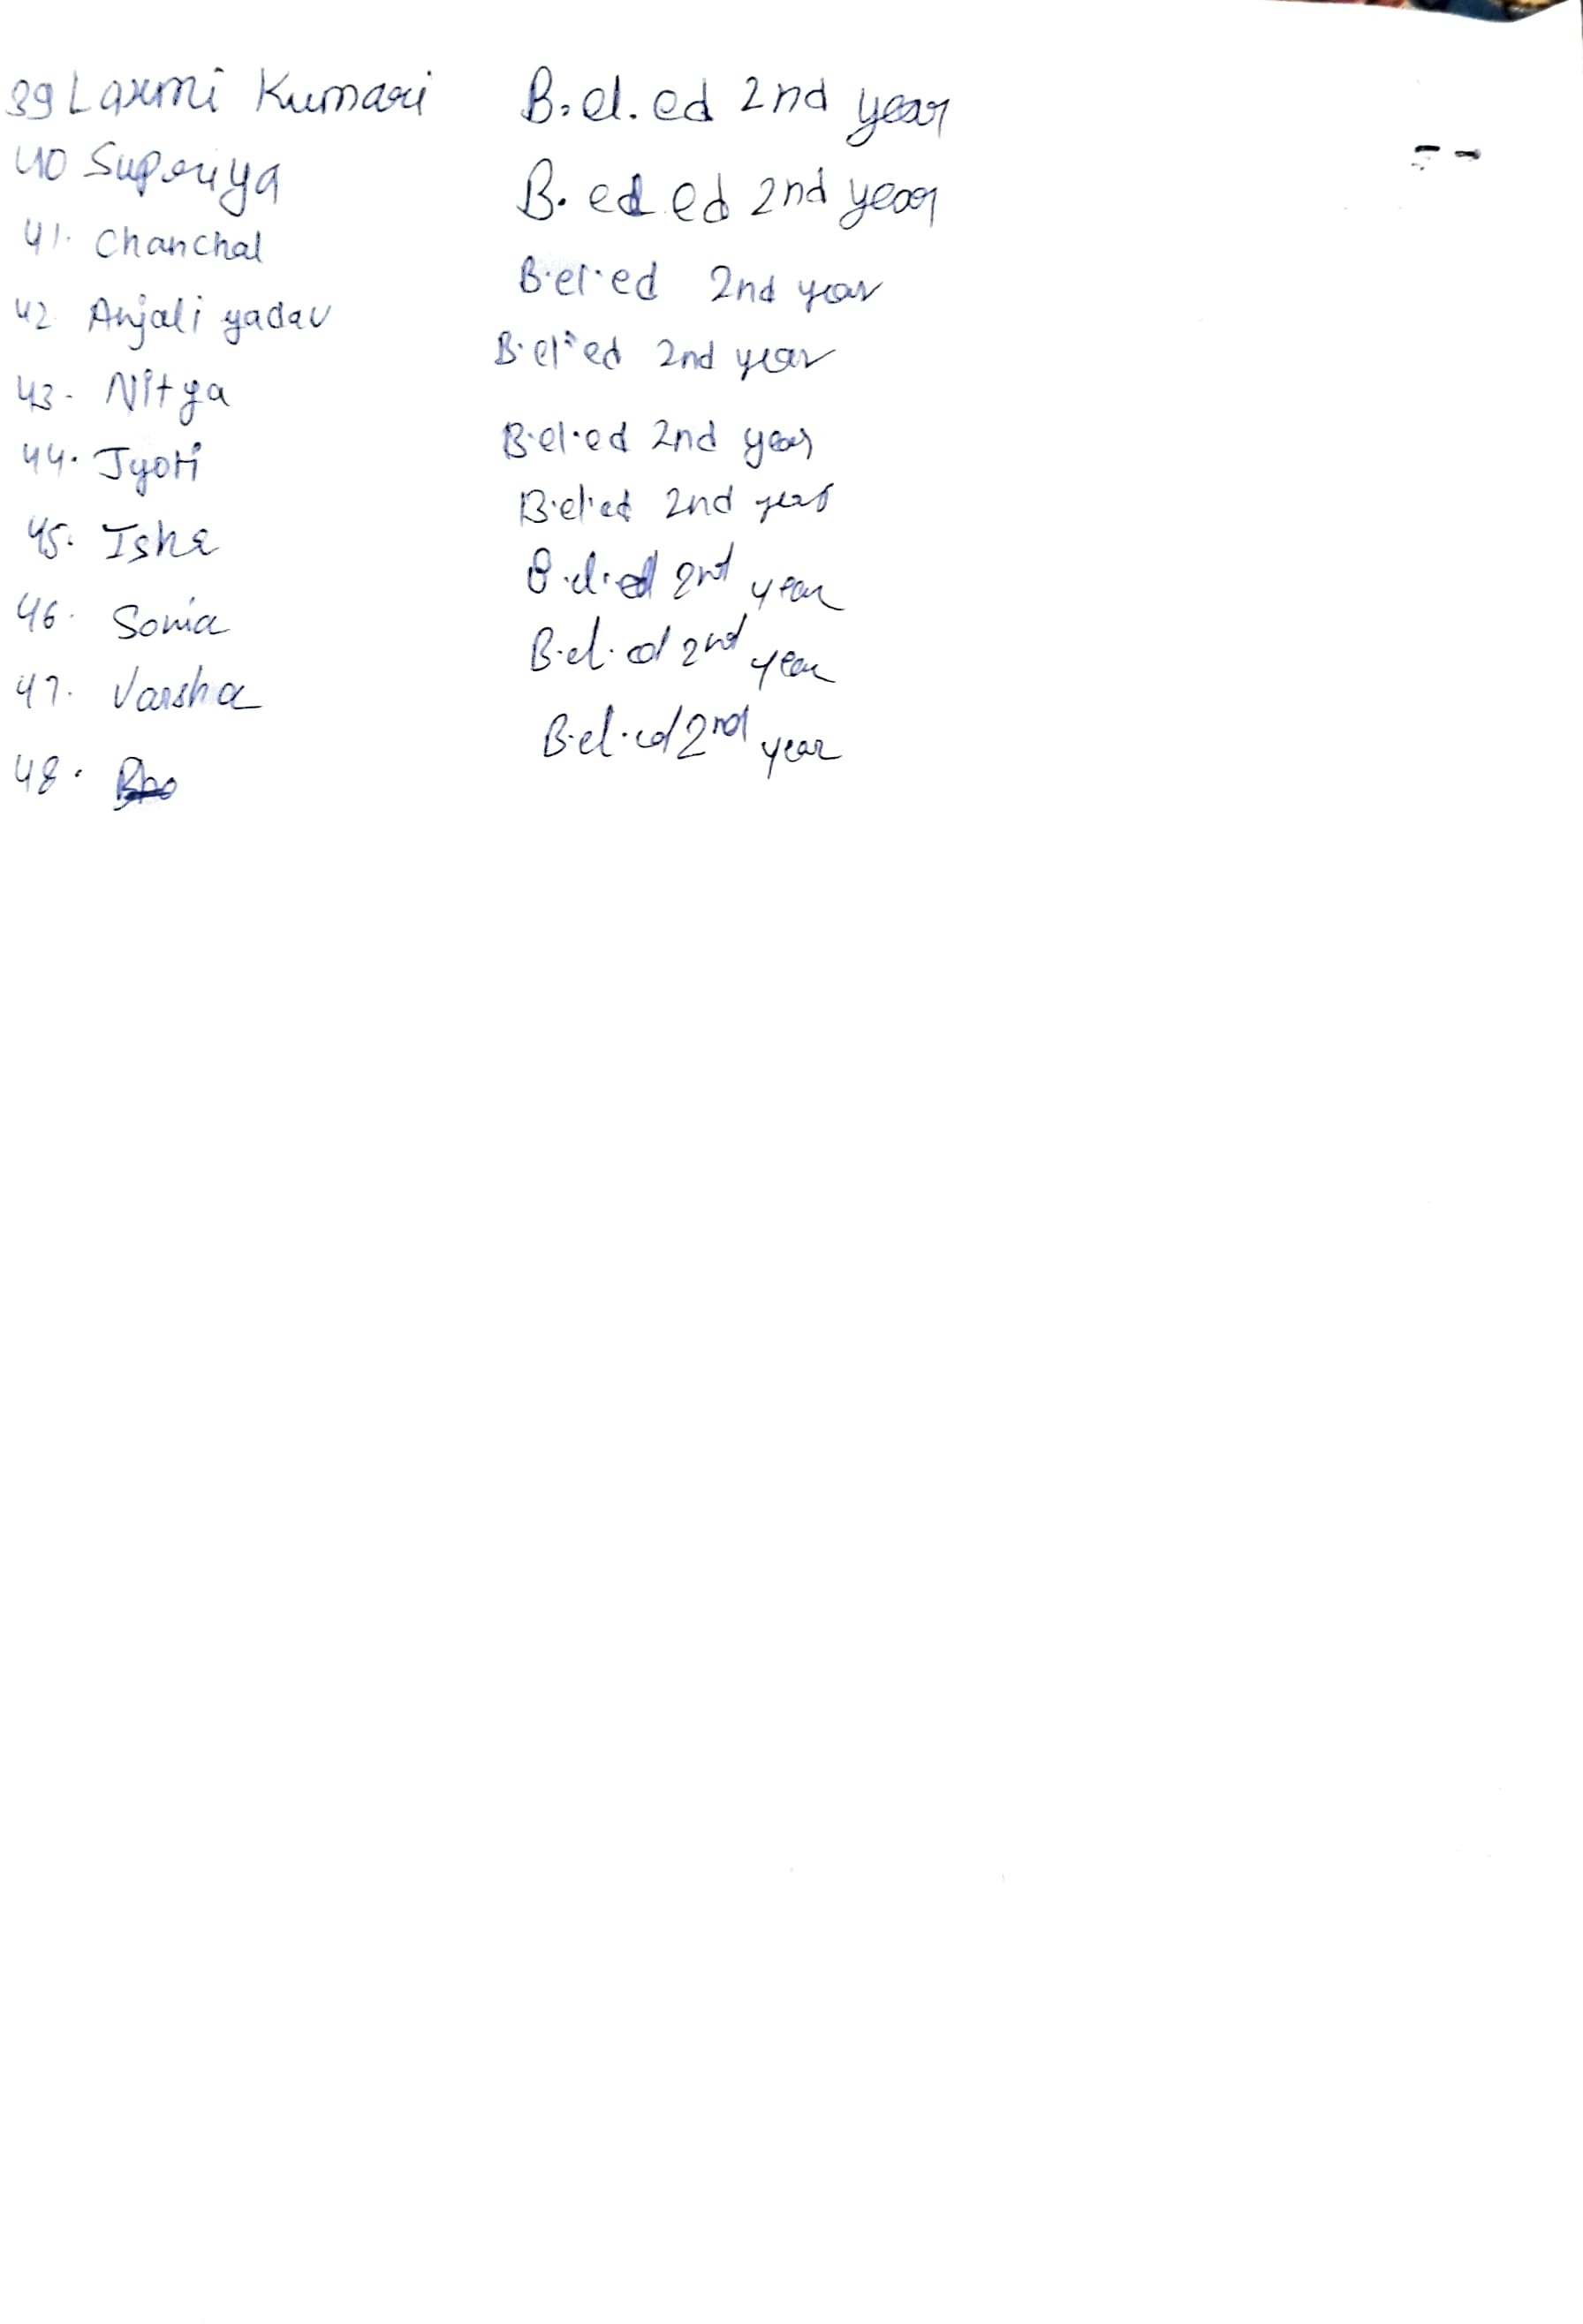 39 Laxmi Kumari B.el.ed 2nd year
40 Supriya B.el ed 2nd year
41. Chanchal B.el.ed 2nd year
42. Anjali yadav B.el.ed 2nd year
43. Nitya B.el.ed 2nd year
44. Jyoti B.el.ed 2nd year
45. Isha B.el.ed 2nd year
46. Sonia B.el.ed 2nd year
47. Varsha B.el.ed 2nd year
48.